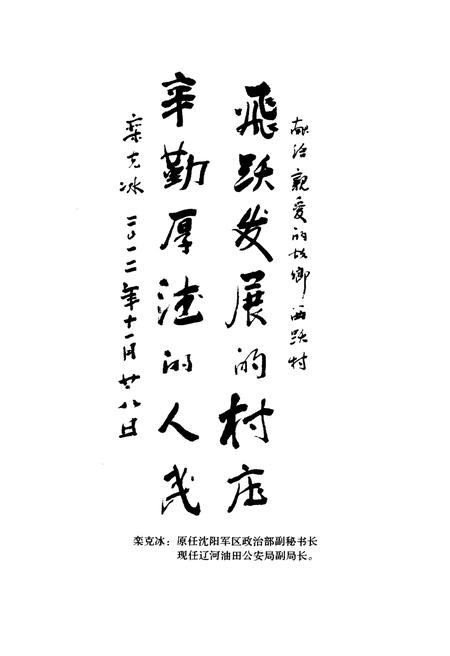 献给亲爱的故乡西跃村
飞跃发展的村庄
辛勤厚德的人民
栾克冰 二〇一二年十一月廿八日
栾克冰：原任沈阳军区政治部副秘书长
现任辽河油田公安局副局长。